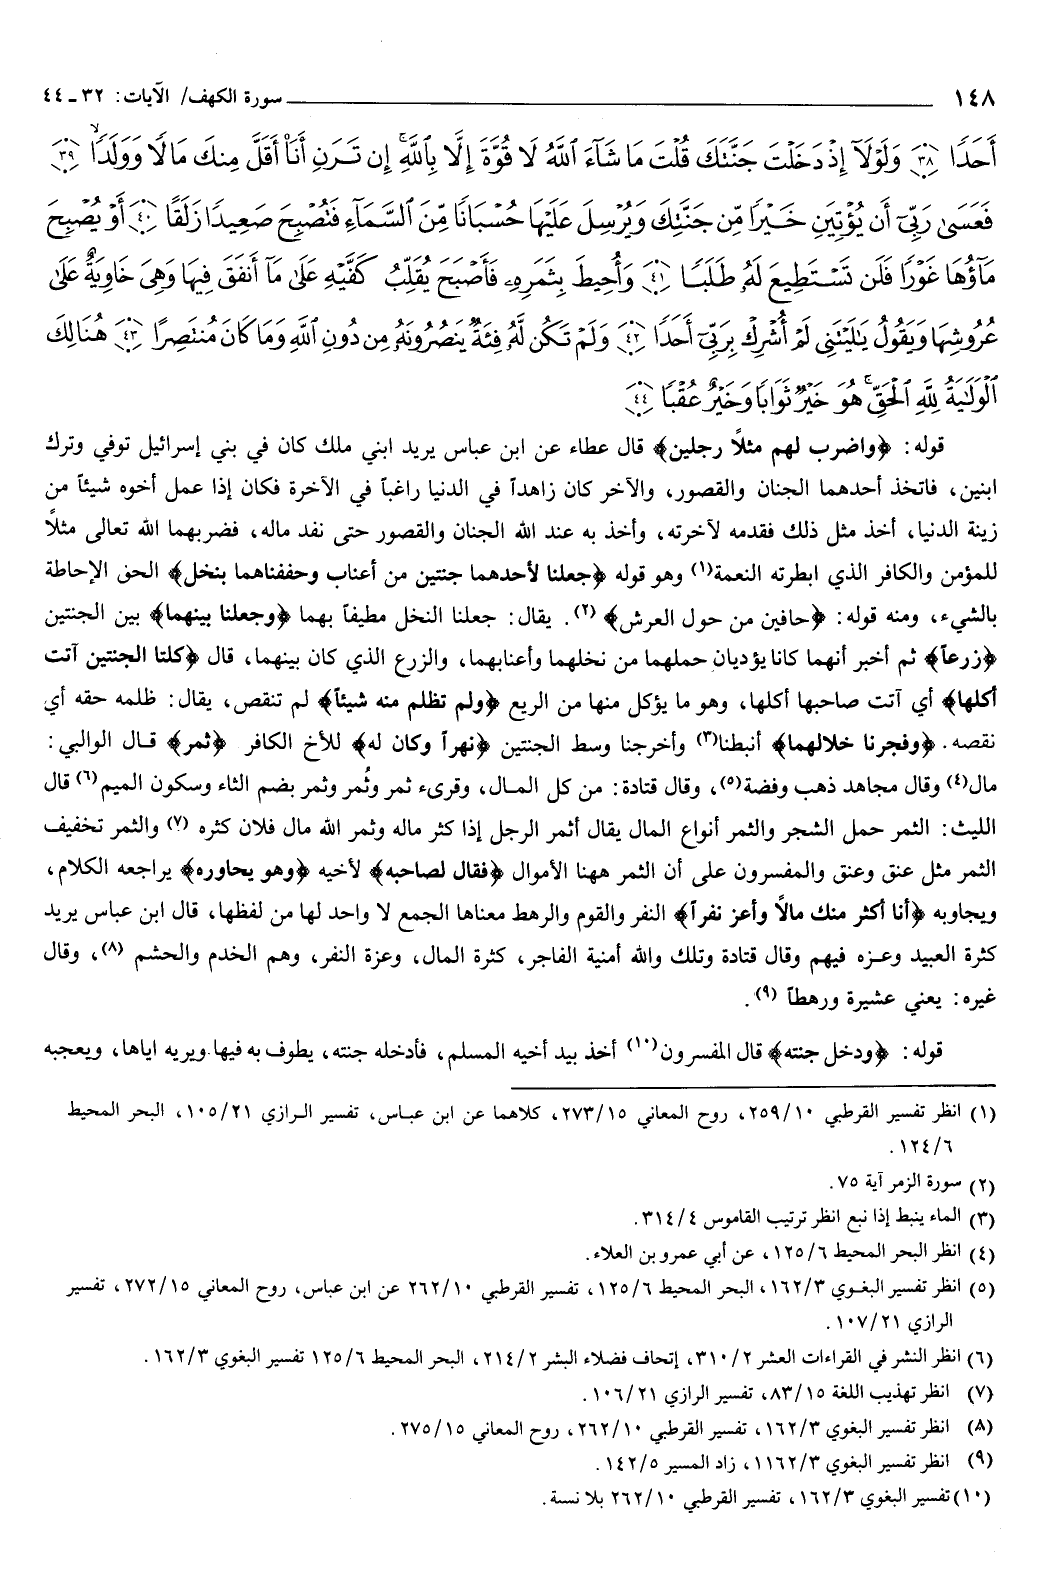 ١٤٨ ــــــ سورة الكهف/ الآيات: ٣٢ ـ ٤٤
أَحَدًا ﴿٣٨﴾ وَلَوْلَآ إِذْ دَخَلْتَ جَنَّتَكَ قُلْتَ مَا شَآءَ ٱللَّهُ لَا قُوَّةَ إِلَّا بِٱللَّهِۚ إِن تَرَنِ أَنَا۠ أَقَلَّ مِنكَ مَالًا وَوَلَدًاۙ ﴿٣٩﴾
فَعَسَىٰ رَبِّىٓ أَن يُؤْتِيَنِ خَيْرًا مِّن جَنَّتِكَ وَيُرْسِلَ عَلَيْهَا حُسْبَانًا مِّنَ ٱلسَّمَآءِ فَتُصْبِحَ صَعِيدًا زَلَقًا ﴿٤٠﴾ أَوْ يُصْبِحَ
مَآؤُهَا غَوْرًا فَلَن تَسْتَطِيعَ لَهُۥ طَلَبًا ﴿٤١﴾ وَأُحِيطَ بِثَمَرِهِۦ فَأَصْبَحَ يُقَلِّبُ كَفَّيْهِ عَلَىٰ مَآ أَنفَقَ فِيهَا وَهِىَ خَاوِيَةٌ عَلَىٰ
عُرُوشِهَا وَيَقُولُ يَٰلَيْتَنِى لَمْ أُشْرِكْ بِرَبِّىٓ أَحَدًا ﴿٤٢﴾ وَلَمْ تَكُن لَّهُۥ فِئَةٌ يَنصُرُونَهُۥ مِن دُونِ ٱللَّهِ وَمَا كَانَ مُنتَصِرًا ﴿٤٣﴾ هُنَالِكَ
ٱلْوَلَٰيَةُ لِلَّهِ ٱلْحَقِّۚ هُوَ خَيْرٌ ثَوَابًا وَخَيْرٌ عُقْبًا ﴿٤٤﴾
قوله: ﴿واضرب لهم مثلاً رجلين﴾ قال عطاء عن ابن عباس يريد ابني ملك كان في بني إسرائيل توفي وترك
ابنين، فاتخذ أحدهما الجنان والقصور، والآخر كان زاهداً في الدنيا راغباً في الآخرة فكان إذا عمل أخوه شيئاً من
زينة الدنيا، أخذ مثل ذلك فقدمه لآخرته، وأخذ به عند الله الجنان والقصور حتى نفد ماله، فضربهما الله تعالى مثلاً
للمؤمن والكافر الذي ابطرته النعمة(١) وهو قوله ﴿جعلنا لأحدهما جنتين من أعناب وحففناهما بنخل﴾ الحق الإحاطة
بالشيء، ومنه قوله: ﴿حافين من حول العرش﴾ (٢). يقال: جعلنا النخل مطيفاً بهما ﴿وجعلنا بينهما﴾ بين الجنتين
﴿زرعاً﴾ ثم أخبر أنهما كانا يؤديان حملهما من نخلهما وأعنابهما، والزرع الذي كان بينهما، قال ﴿كلتا الجنتين آتت
أكلها﴾ أي آتت صاحبها أكلها، وهو ما يؤكل منها من الريع ﴿ولم تظلم منه شيئاً﴾ لم تنقص، يقال: ظلمه حقه أي
نقصه. ﴿وفجرنا خلالهما﴾ أنبطنا(٣) وأخرجنا وسط الجنتين ﴿نهراً وكان له﴾ للأخ الكافر ﴿ثمر﴾ قال الوالبي:
مال(٤) وقال مجاهد ذهب وفضة(٥)، وقال قتادة: من كل المال، وقرىء ثمر وثُمر وثمر بضم الثاء وسكون الميم(٦) قال
الليث: الثمر حمل الشجر والثمر أنواع المال يقال أثمر الرجل إذا كثر ماله وثمر الله مال فلان كثره (٧) والثمر تخفيف
الثمر مثل عنق وعنق والمفسرون على أن الثمر ههنا الأموال ﴿فقال لصاحبه﴾ لأخيه ﴿وهو يحاوره﴾ يراجعه الكلام،
ويجاوبه ﴿أنا أكثر منك مالاً وأعز نفراً﴾ النفر والقوم والرهط معناها الجمع لا واحد لها من لفظها، قال ابن عباس يريد
كثرة العبيد وعزه فيهم وقال قتادة وتلك والله أمنية الفاجر، كثرة المال، وعزة النفر، وهم الخدم والحشم (٨)، وقال
غيره: يعني عشيرة ورهطاً (٩).
قوله: ﴿ودخل جنته﴾ قال المفسرون(١٠) أخذ بيد أخيه المسلم، فأدخله جنته، يطوف به فيها ويريه اياها، ويعجبه
(١) انظر تفسير القرطبي ٢٥٩/١٠، روح المعاني ٢٧٣/١٥، كلاهما عن ابن عباس، تفسير الرازي ١٠٥/٢١، البحر المحيط
١٢٤/٦.
(٢) سورة الزمر آية ٧٥.
(٣) الماء ينبط إذا نبع انظر ترتيب القاموس ٣١٤/٤.
(٤) انظر البحر المحيط ١٢٥/٦، عن أبي عمرو بن العلاء.
(٥) انظر تفسير البغوي ١٦٢/٣، البحر المحيط ١٢٥/٦، تفسير القرطبي ٢٦٢/١٠ عن ابن عباس، روح المعاني ٢٧٢/١٥، تفسير
الرازي ١٠٧/٢١.
(٦) انظر النشر في القراءات العشر ٣١٠/٢، إتحاف فضلاء البشر ٢١٤/٢، البحر المحيط ١٢٥/٦ تفسير البغوي ١٦٢/٣.
(٧) انظر تهذيب اللغة ٨٣/١٥، تفسير الرازي ١٠٦/٢١.
(٨) انظر تفسير البغوي ١٦٢/٣، تفسير القرطبي ٢٦٢/١٠، روح المعاني ٢٧٥/١٥.
(٩) انظر تفسير البغوي ١١٦٢/٣، زاد المسير ١٤٢/٥.
(١٠) تفسير البغوي ١٦٢/٣، تفسير القرطبي ٢٦٢/١٠ بلا نسة.